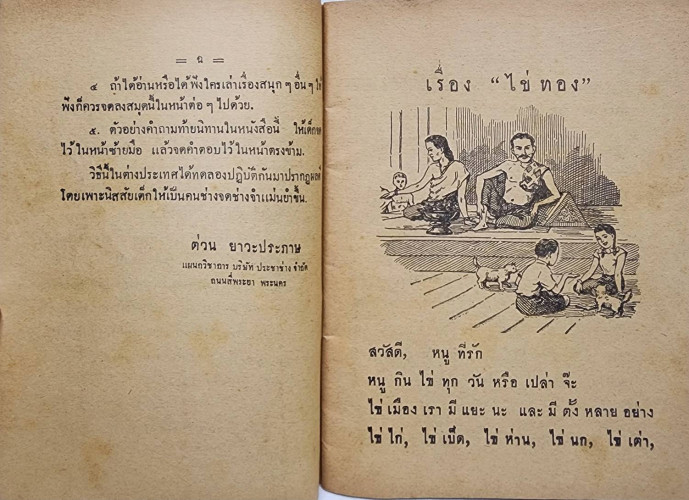 = ฉ =
๔ ถ้าได้อ่านหรือได้ฟังใครเล่าเรื่องสนุก ๆ อื่น ๆ
ฟังก็ควรจดลงสมุดนี้ในหน้าต่อ ๆ ไปด้วย.
๕. ตัวอย่างคำถามท้ายนิทานในหนังสือนี้ ให้เด็ก
ไว้ในหน้าซ้ายมือ แล้วจดคำตอบไว้ในหน้าตรงข้าม.
วิธีนี้ในต่างประเทศได้ทดลองปฏิบัติกันมาปรากฏ
โดยเพาะนิสสัยเด็กให้เป็นคนช่างจดช่างจำแม่นยำขึ้น.
ต่วน ยาวะประภาษ
แผนกวิชาการ บริษัท ประชาช่าง จำกัด
ถนนสี่พระยา พระนคร
เรื่อง “ไข่ ทอง”
สวัสดี, หนู ที่รัก
หนู กิน ไข่ ทุก วัน หรือ เปล่า จ๊ะ
ไข่ เมือง เรา มี แยะ นะ และ มี ตั้ง หลาย อย่าง
ไข่ ไก่, ไข่ เป็ด, ไข่ ห่าน, ไข่ นก, ไข่ เต่า,